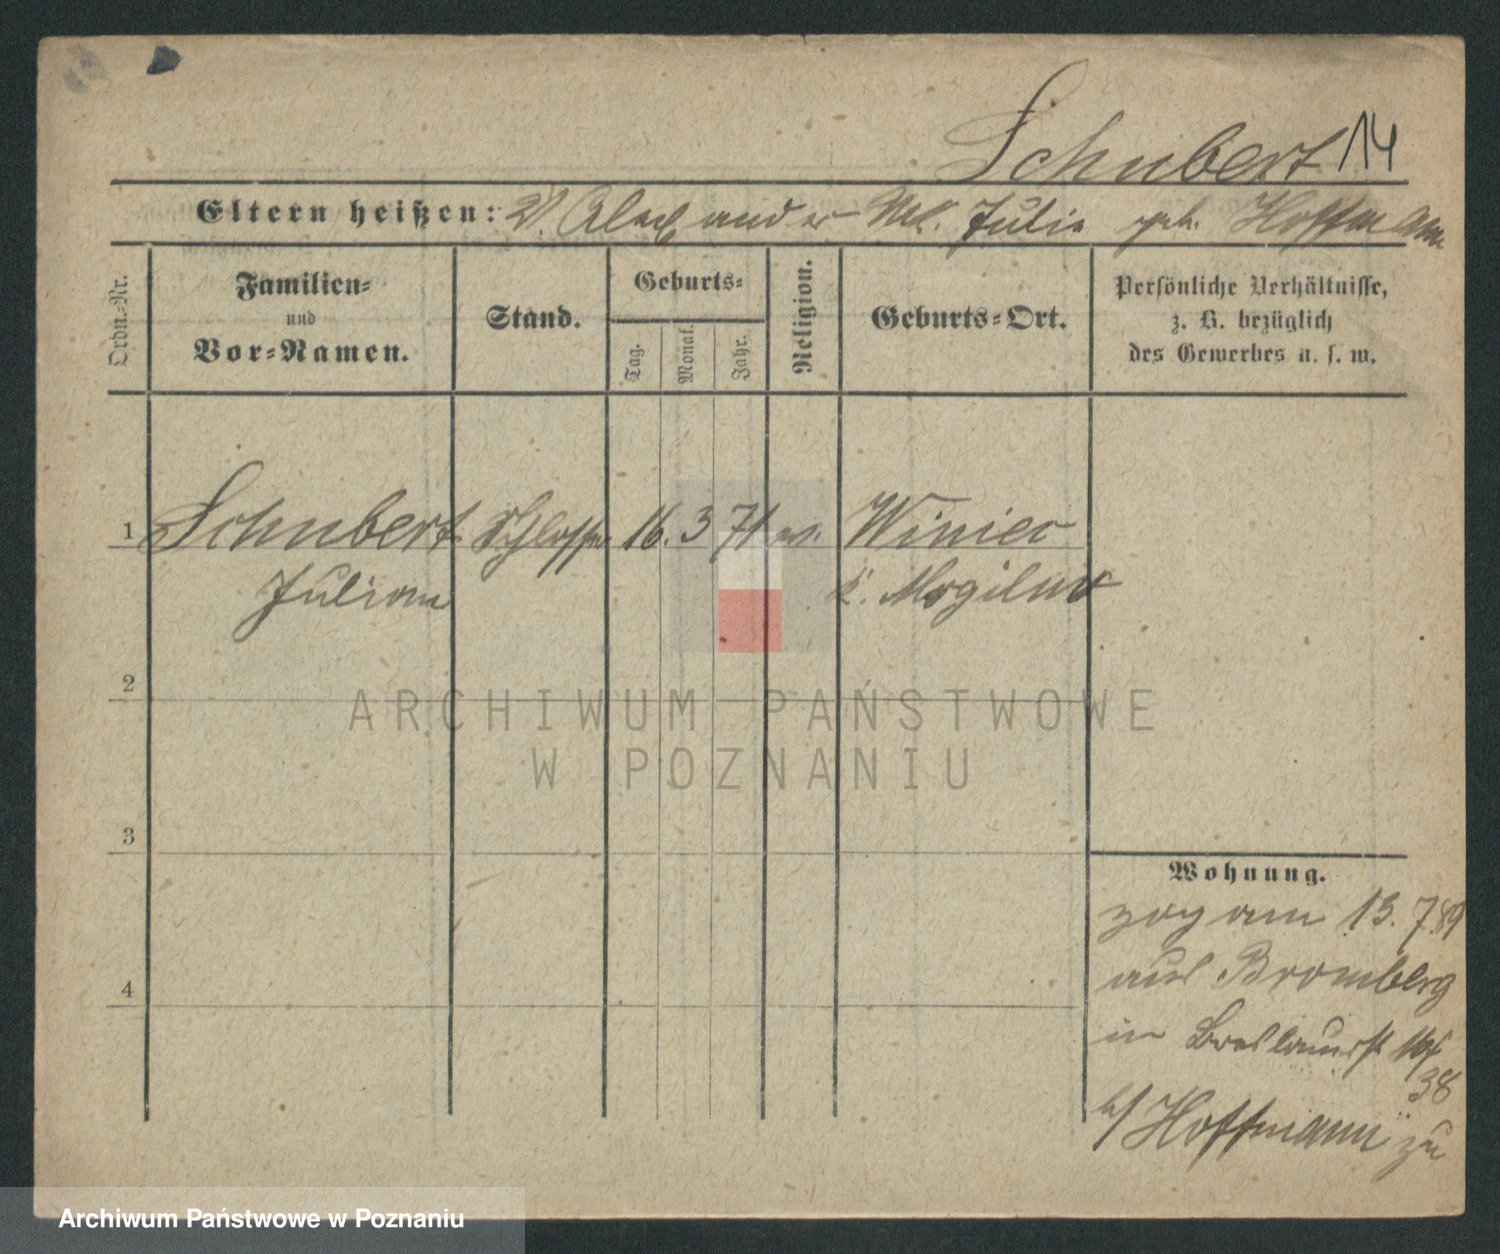 Schubert 14
Eltern heißen: V. Alexander M. Julie geb. Hoffmann
Ordn.-Nr.
Familien-
und
Vor-Namen.
Stand.
Geburts-
Tag.
Monat.
Jahr.
Religion.
Geburts-Ort.
Persönliche Verhältnisse,
z. B. bezüglich
des Gewerbes u. s. w.
1 Schubert Schlosser 16. 3 71 Winiec
Julian k. Mogilno
2
ARCHIWUM PAŃSTWOWE
W POZNANIU
3
4
Wohnung.
zog am 13. 7. 89
aus Bromberg
in Breslauerst
38
b/ Hoffmann zu
Archiwum Państwowe w Poznaniu